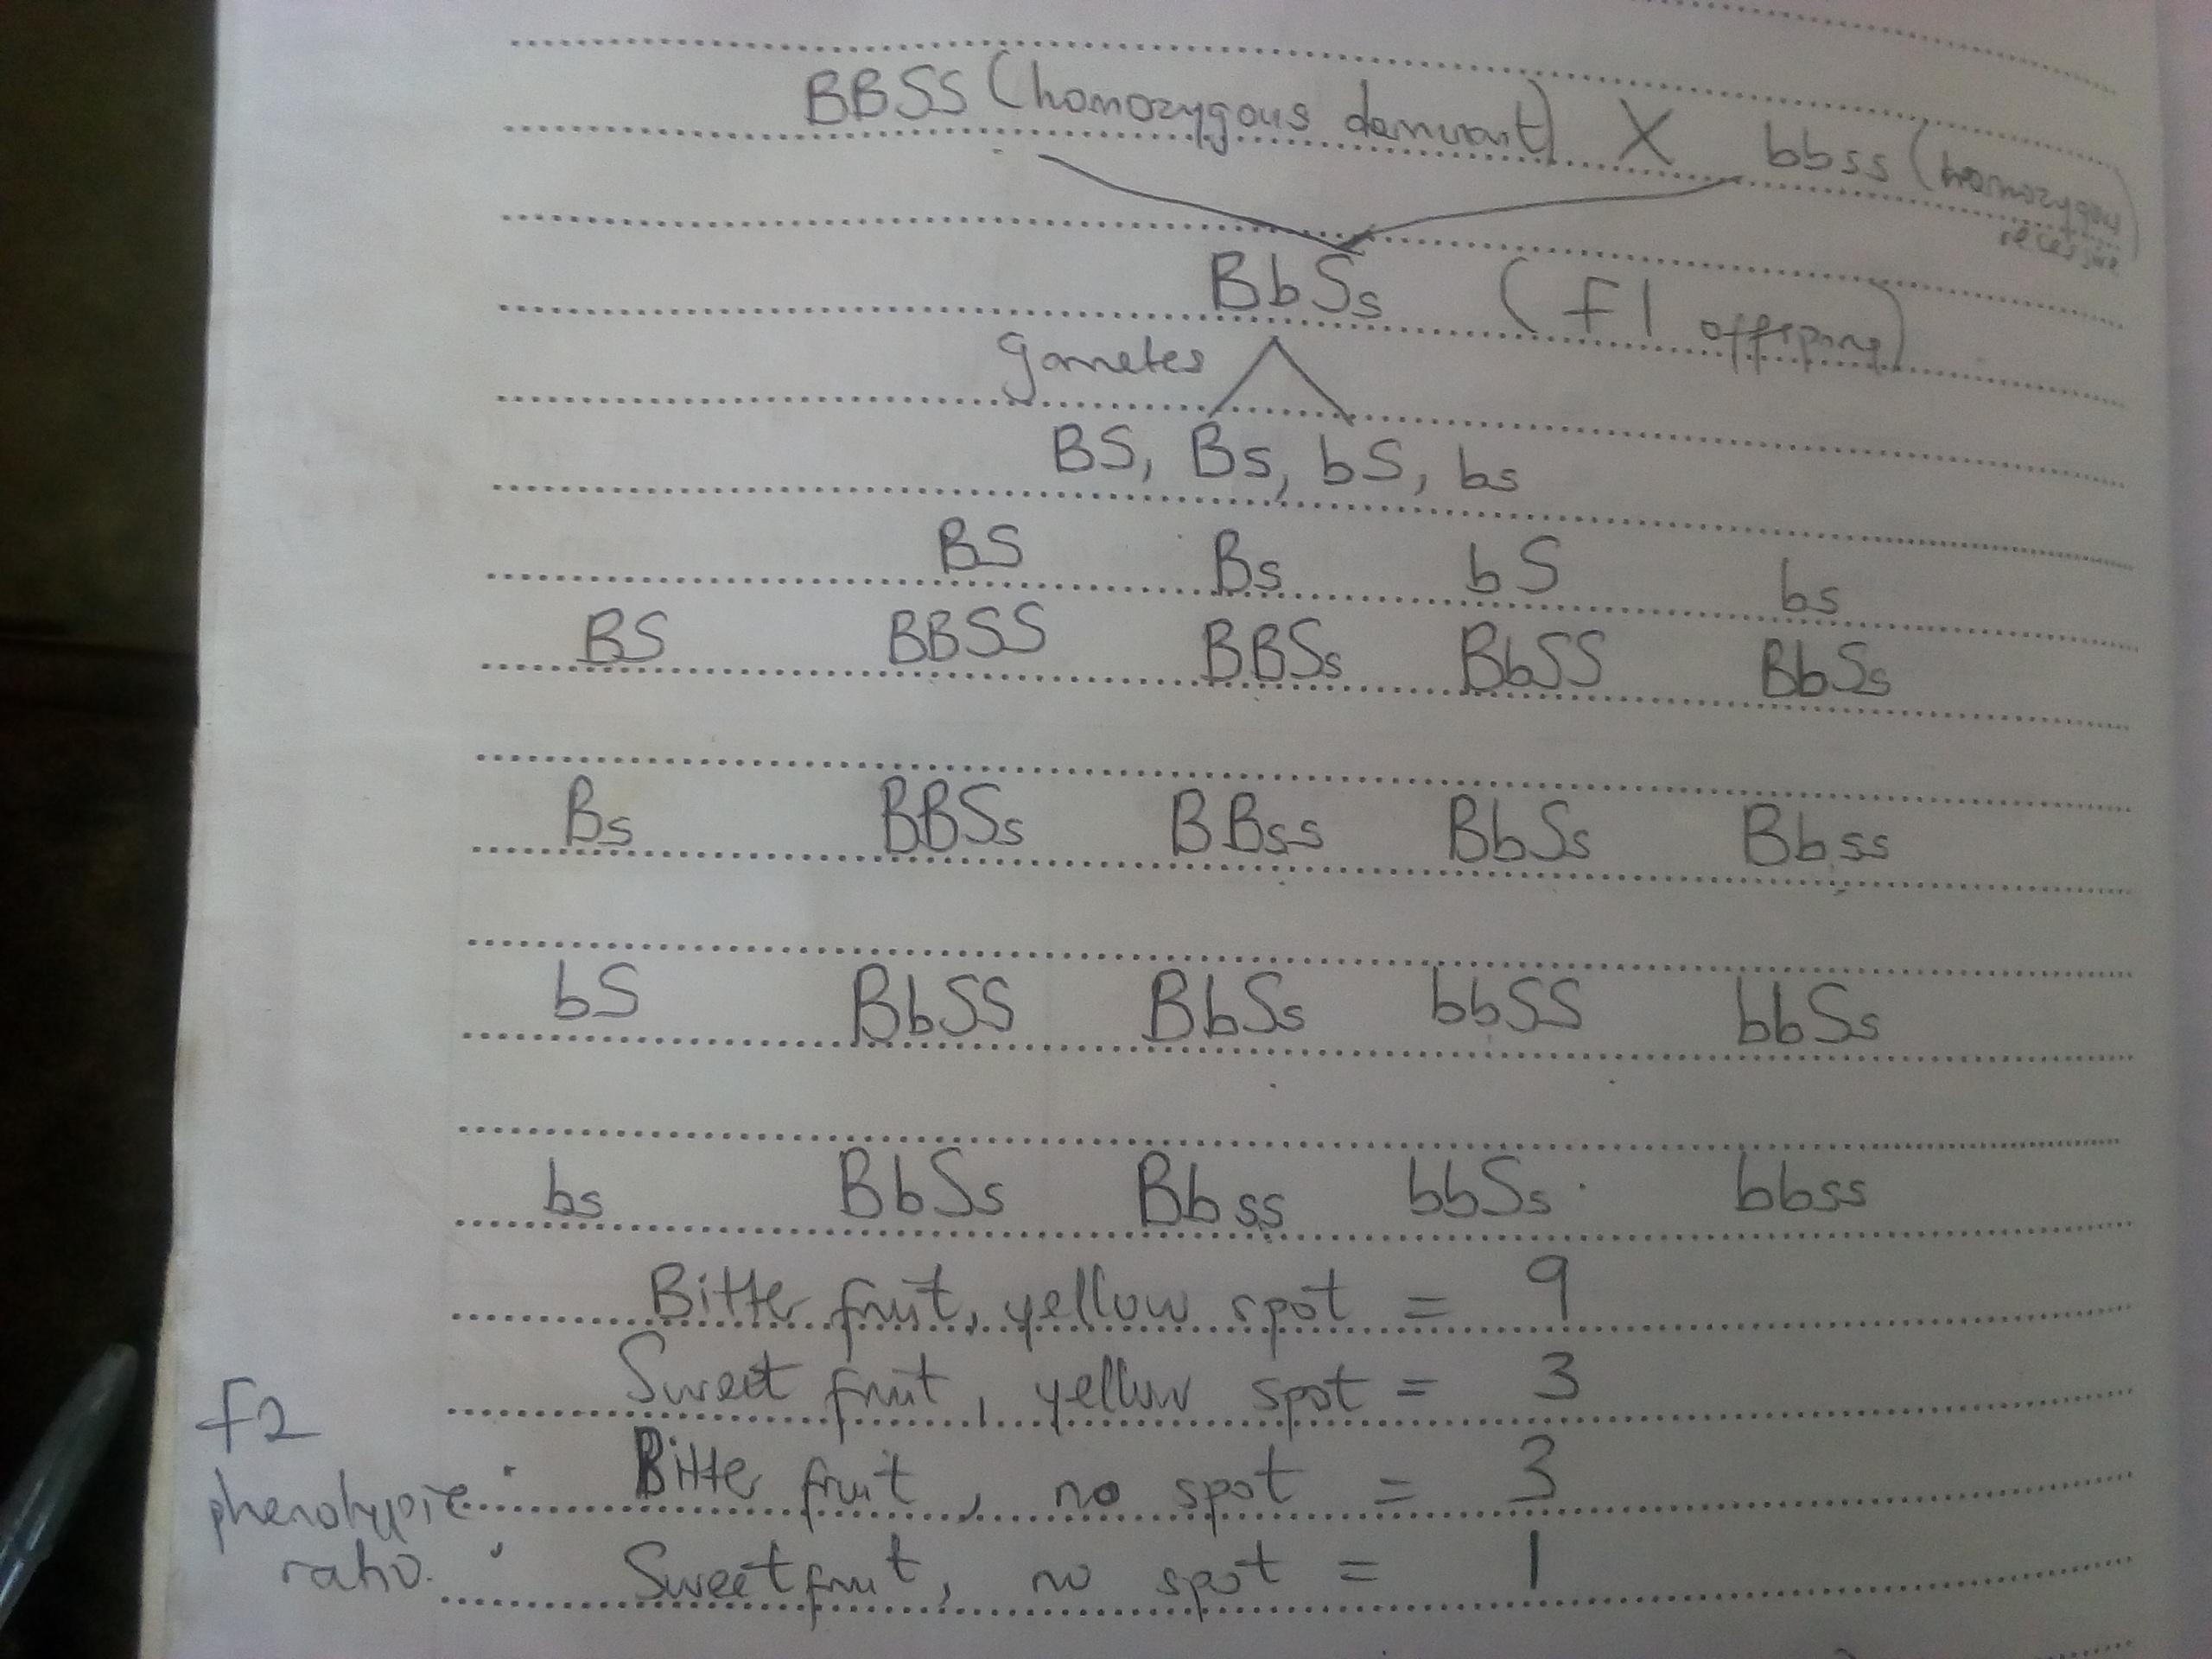 BBSS (homozygous dominant) X bbss (homozygous
recessive
BbSs (F1 offspring)
gametes
BS, Bs, bS, bs
BS Bs bS bs
BS BBSS BBSs BbSS BbSs
Bs BBSs BBss BbSs Bbss
bS BbSS BbSs bbSS bbSs
bs BbSs Bbss bbSs bbss
Bitter fruit, yellow spot = 9
Sweet fruit, yellow spot = 3
Bitter fruit, no spot = 3
Sweet fruit, no spot = 1
F2
phenotypic
ratio.